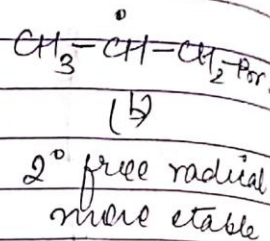 CH₃–ĊH–CH₂–Br.
(b)
2° free radical
more stable